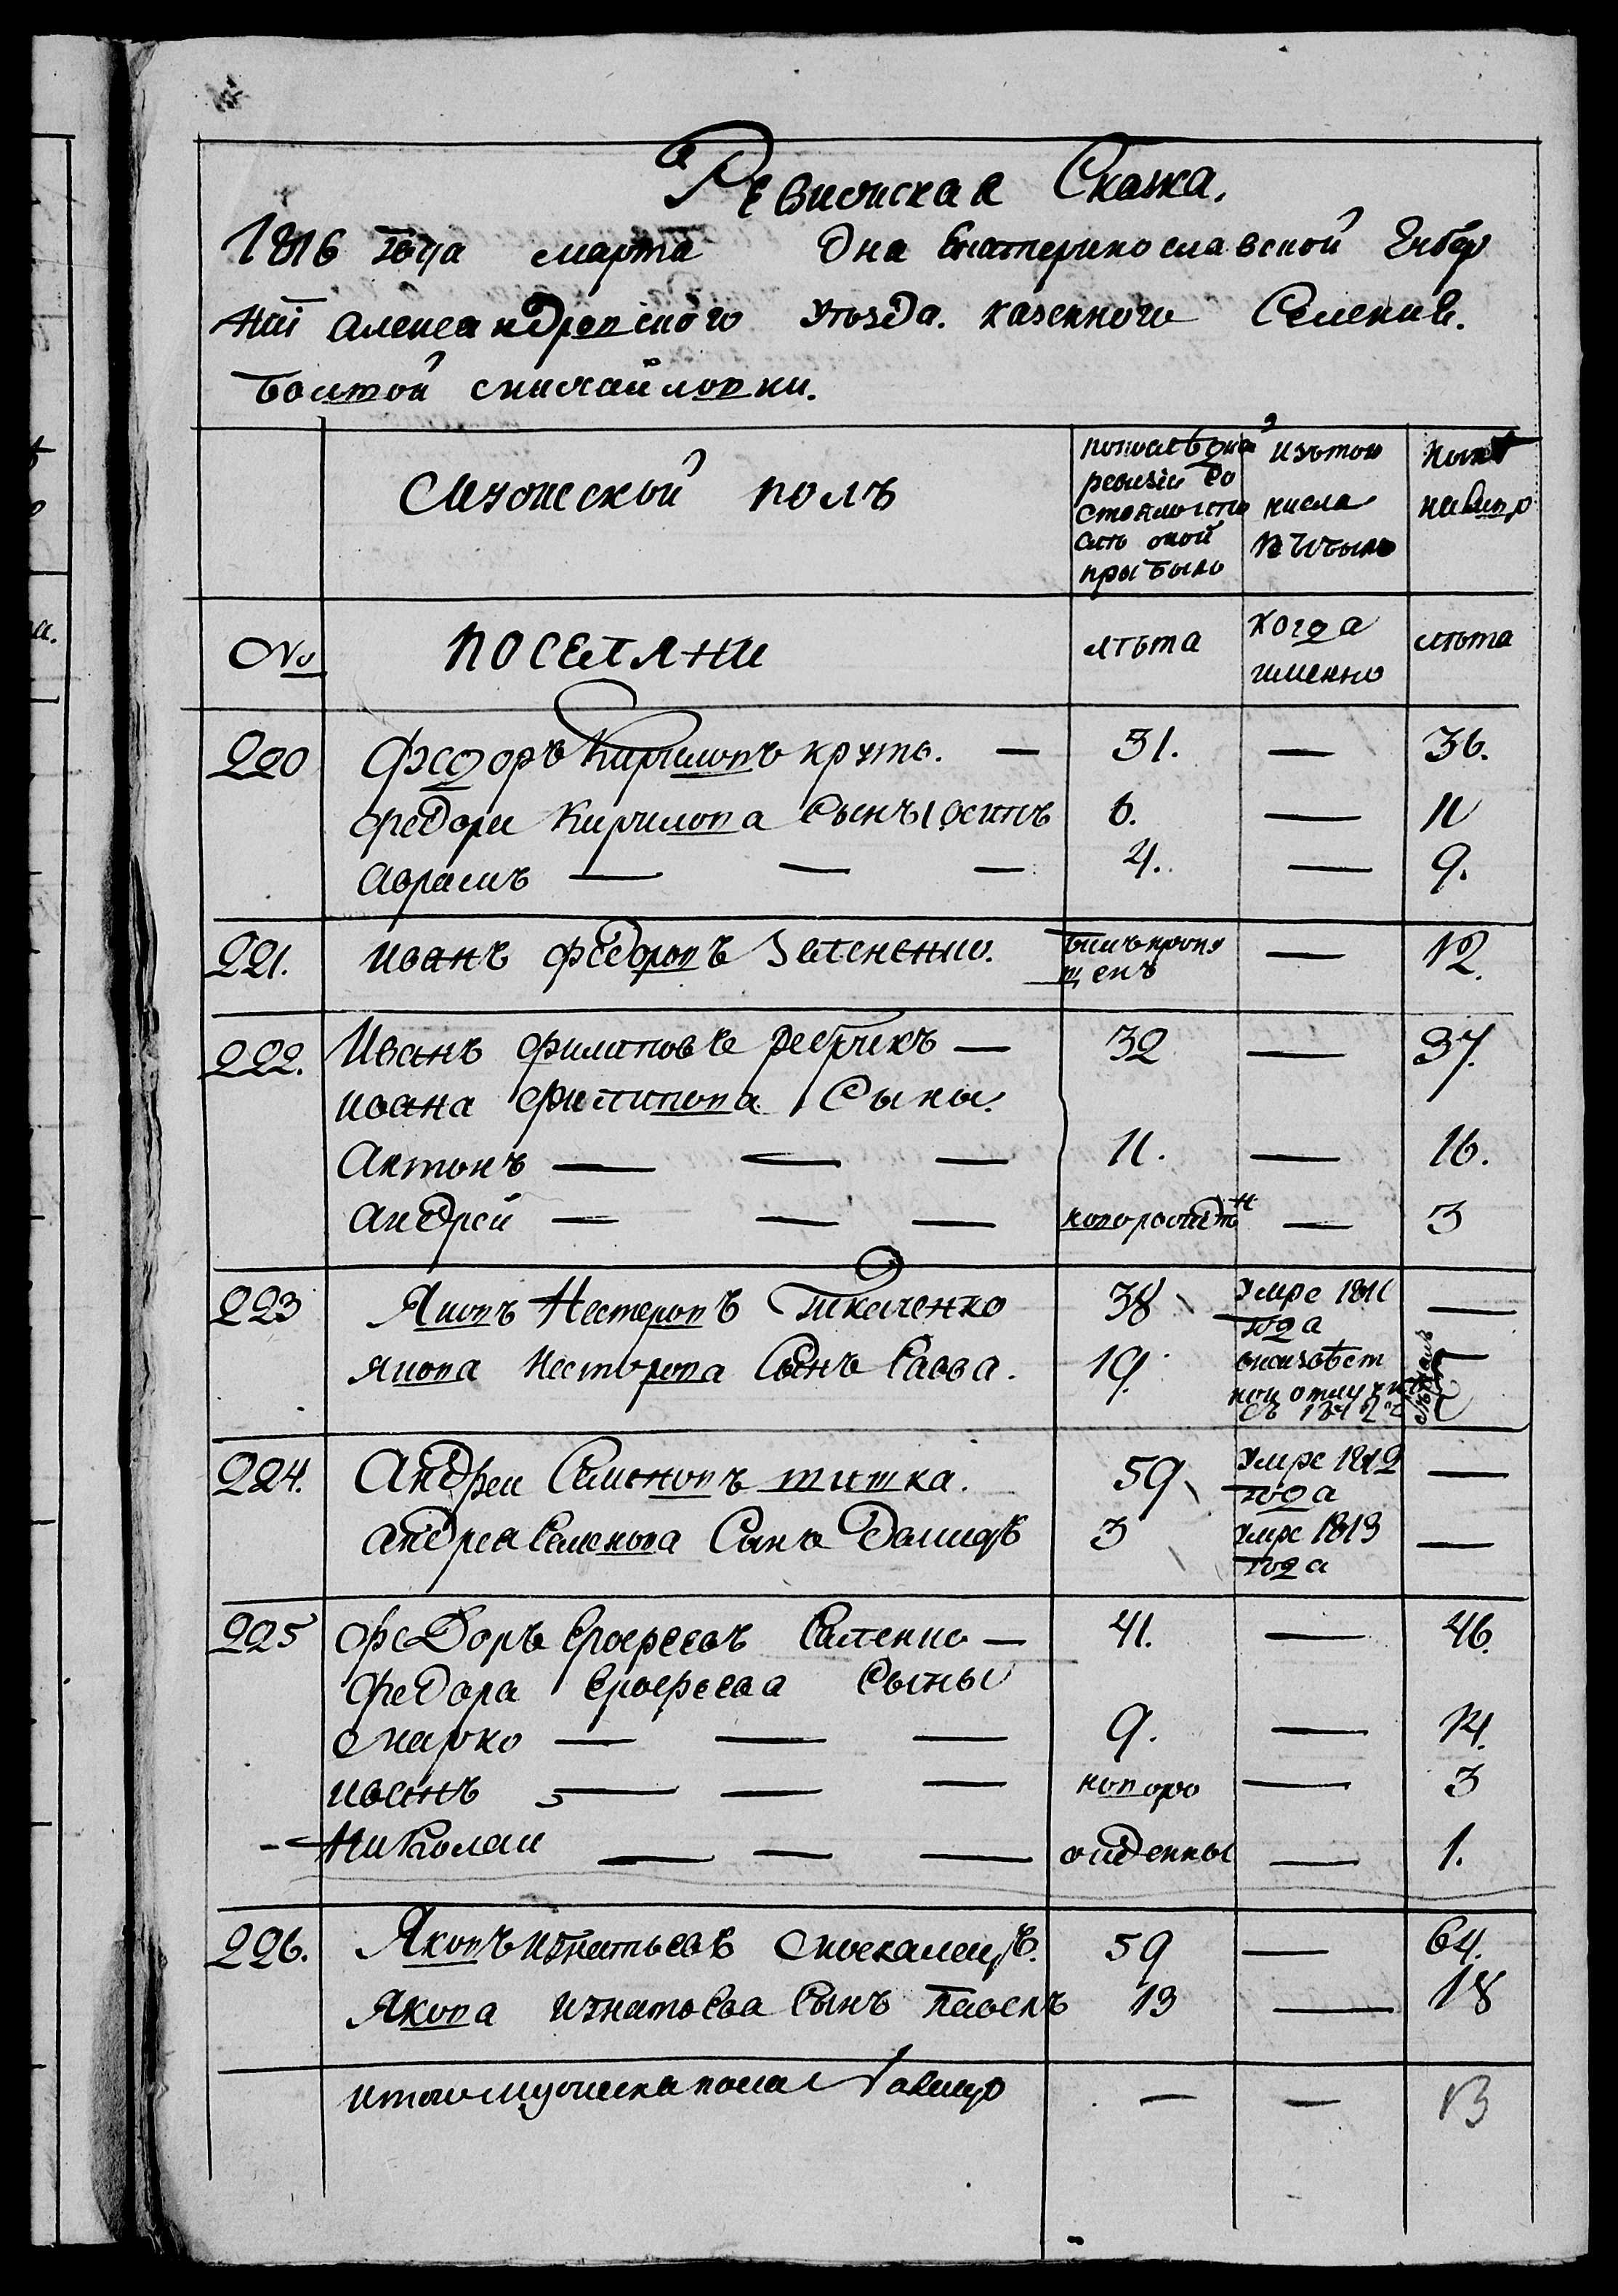 Ревизская Сказка.
1816 года марта дня Екатеринославской Губер
нии александровского уѣзда. казенного Селения.
болшой михайловки.
Мужеской полъ
по последней ревизіи состояло и после оной прибыло
Изъ того числа выбыло
Ныне на лицо
№ поселяни лѣта когда именно лѣта
220 Федоръ Кириловъ круть. — 31. — 36.
Федора Кирилова Сынъ 1 осипъ 6. — 11
аврамъ — — — 4. — 9.
221. иванъ федоровъ Зеленско. былъ пропу щенъ — 12.
222. Иванъ филиповъ ребрикъ — 32 — 37.
ивана филипова Сыны.
Антонъ — — — 11. — 16.
андрей — — — новорожден — 3
223 Яковъ Нестеровъ Ткаченко 38 умре 1811 года —
якова нестерова Сынъ Савва. 19. 
224. Андреи Семеновъ титка. 59 умре 1812 года —
андрея Семенова Сынъ Демидъ 3 умре 1813 года —
225 федоръ Ерофеевъ Саленко — 41. — 46.
федора Ерофеева Сыны
марко — — — 9. — 14.
иванъ — — — новоро — 3
Николаи — — — жденны — 1.
226. Яковъ игнатьевъ москалецъ. 59 — 64.
Якова игнатьева Сынъ павелъ 13 — 18
итого мужеска пола на лицо — — 13